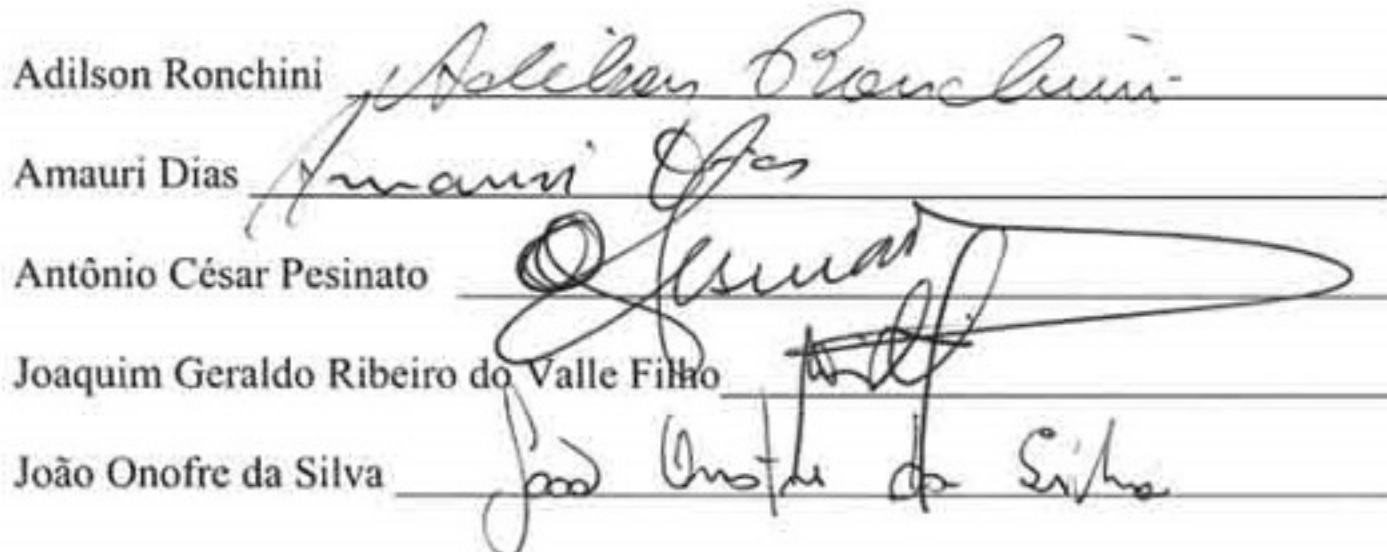 Adilson Ronchini Adilson Ronchini
Amauri Dias Amauri Dias
Antônio César Pesinato
Joaquim Geraldo Ribeiro do Valle Filho
João Onofre da Silva João Onofre da Silva